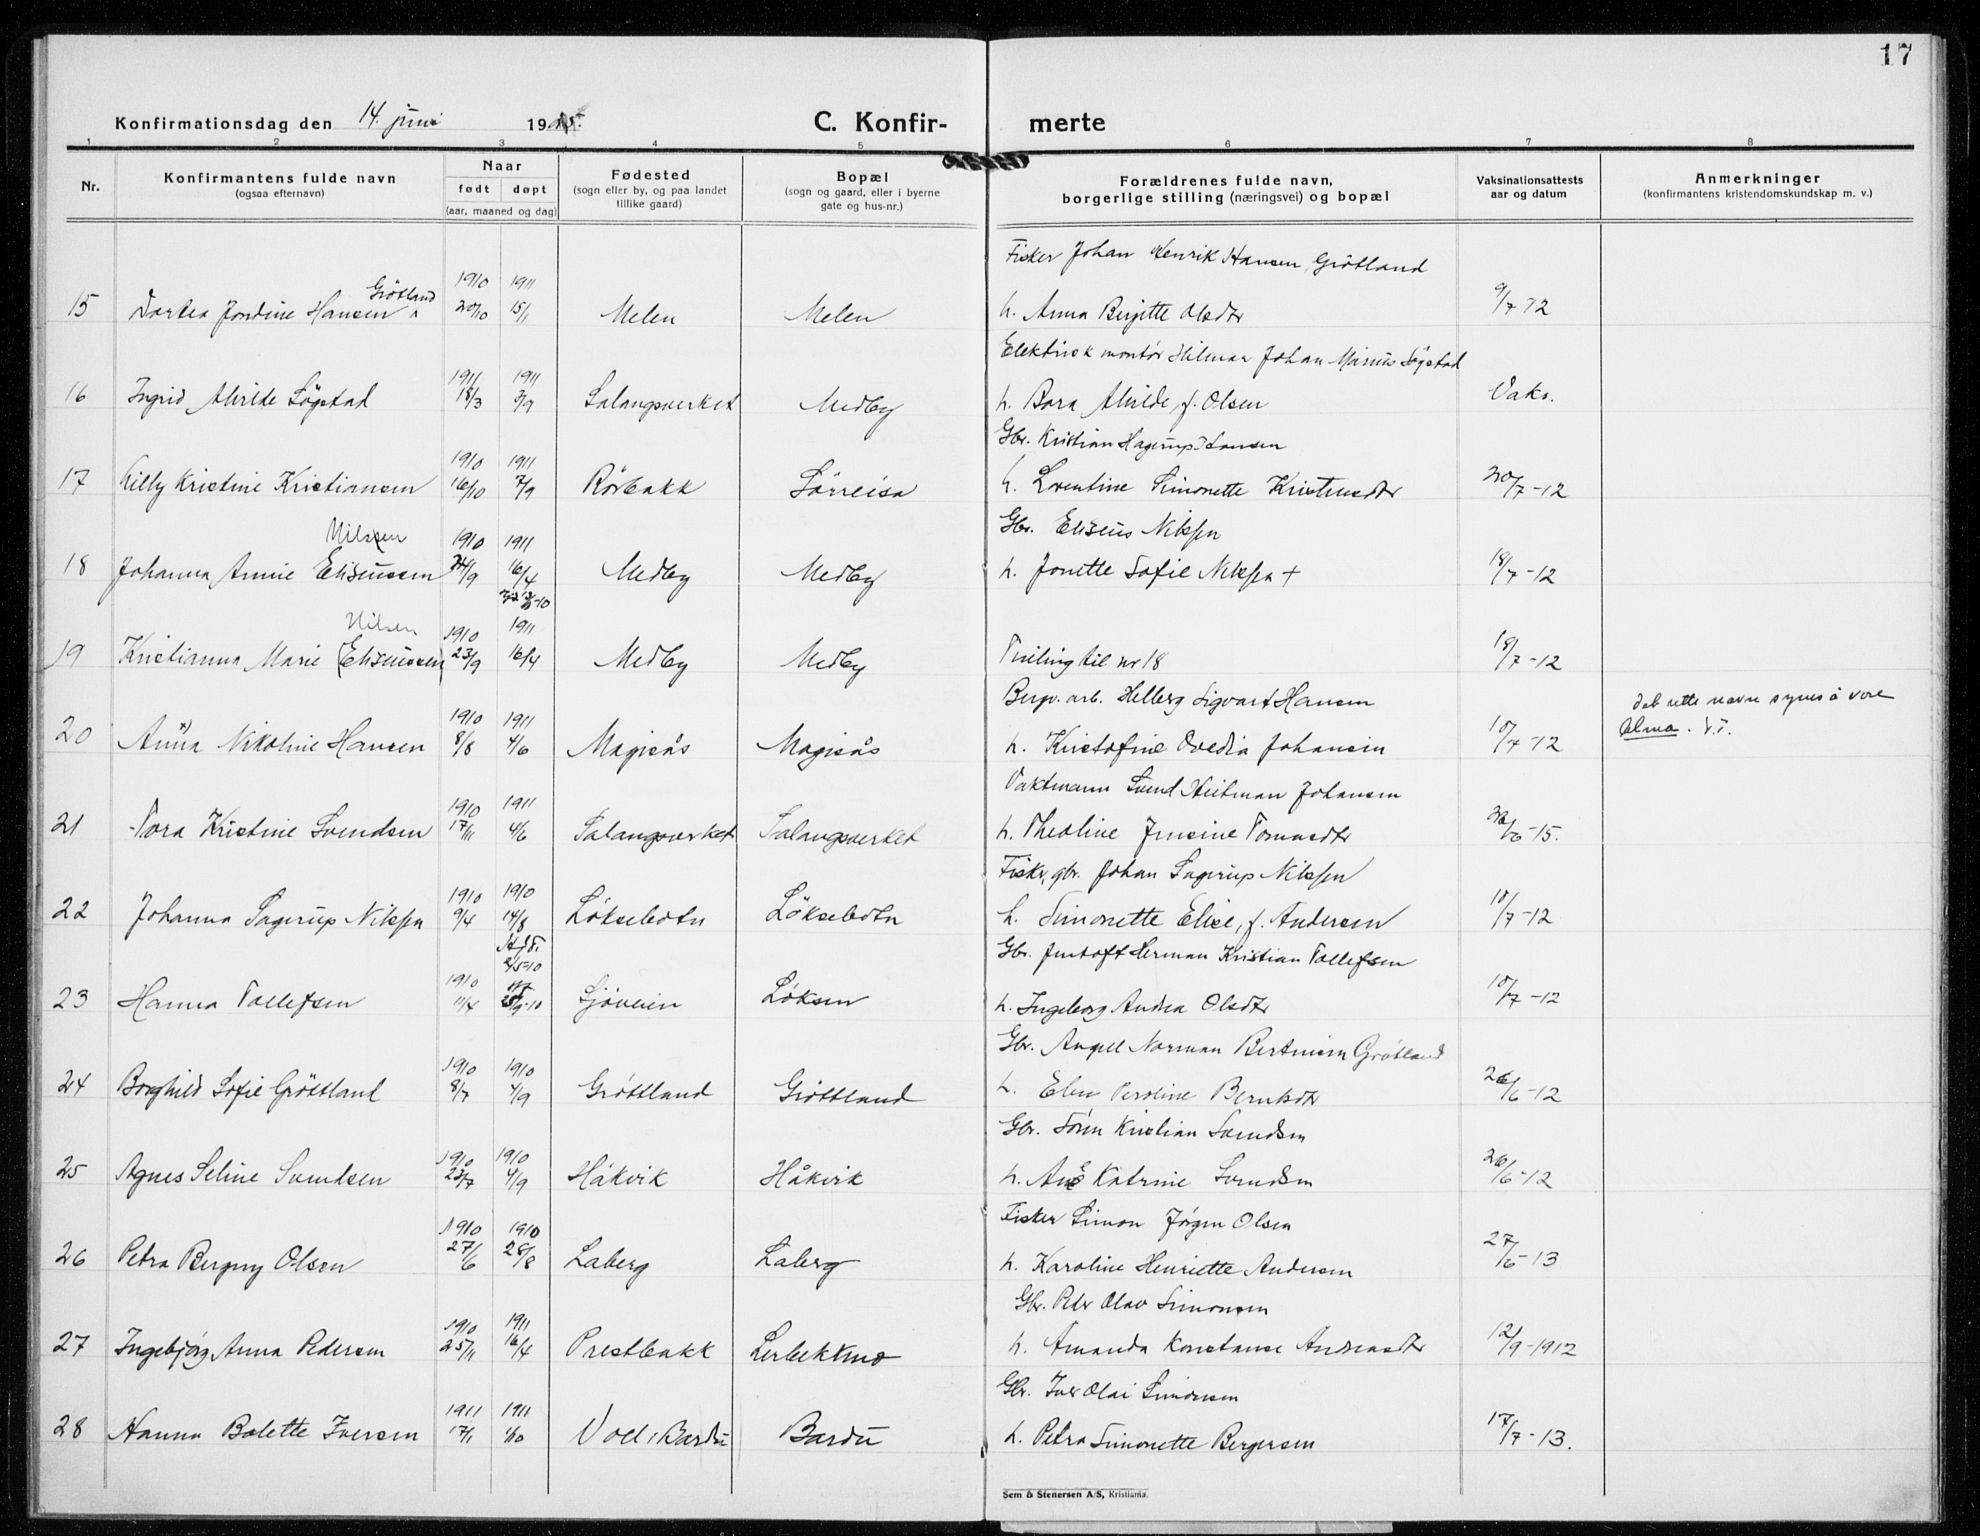 17
Konfirmationsdag den 14. juni 1925.
C. Konfirmerte
1 2 3 4 5 6 7 8
Nr.
Konfirmantens fulde navn
(ogsaa efternavn)
Naar
født døpt
(aar, maaned og dag)
Fødested
(sogn eller by, og paa landet
tillike gaard)
Bopæl
(sogn og gaard, eller i byerne
gate og hus-nr.)
Forældrenes fulde navn,
borgerlige stilling (næringsvei) og bopæl
Vaksinationsattests
aar og datum
Anmerkninger
(konfirmantens kristendomskundskap m. v.)
Grötland 1910 1911 Fisker Johan Henrik Hansen, Grötland
15 Dortea Jordine Hansen 20/10 15/1 Melen Melen h. Anna Birgitte Olsdtr 9/7 12
1911 1911 Elektrisk montör Hilmar Johan Marius Lögstad
16 Ingrid Alvilde Lögstad 18/3 3/9 Salangsverket Medby h. Bora Alvilde, f. Olsen Vaks.
1910 1911 Gbr. Kristian Hagerup Hansen
17 Lilly Kristine Kristiansen 16/10 7/9 Rörbakk Sörreisa h. Lorentine Simonette Kristensdtr 20/7-12
Nilssen 1910 1911 Gbr. Eliseus Nilssen
18 Johanna Annie Eliseussen 24/9 16/4 Medby Medby h. Jonette Sofie Nilssen + 18/7-12
Nilsen 1910 1911
19 Kristianna Marie (Eliseussen) 23/9 16/4 Medby Medby Tvilling til nr 18 18/7-12
1910 1911 Bergv. arb. Helberg Sigvart Hansen det rette navn synes å vere
20 Anna Nikoline Hansen 8/8 4/6 Magisås Magisås h. Kristofine Ovedia Johansen 10/7-12 Alma.
1910 1911 Vaktmann Svend Heitman Johansen
21 Tora Kristine Svendsen 17/11 4/6 Salangsverket Salangsverket h. Theoline Jensine Tomasdtr /6-15.
1910 1910 Fisker, gbr. Johan Sagerup Nilssen
22 Johanna Sagerup Nilssen 9/4 14/8 Löksebotn Löksebotn h. Simonette Elise, f. Andersen 10/7-12
Hj.d. 2/5-10 Gbr. Justoft Herman Kristian Tollefsen
23 Hanna Tollefsen 1910 11/4 25/9-10 Sjöveien Löksen h. Ingeborg Andrea Olsdtr 10/7-12
1910 1910 Gbr. Angell Norman Bertinsen Gröttland
24 Borghild Sofie Gröttland 8/7 4/9 Gröttland Gröttland h. Elen Peroline Berntsdtr 26/6-12
1910 1910 Gbr. Sören Kristian Svendsen
25 Agnes Seline Svendsen 23/7 4/9 Håkvik Håkvik h. Ane Katrine Svendsen 26/6-12
1910 1910 Fisker Simon Jörgen Olsen
26 Petra Bergny Olsen 27/6 28/8 Laberg Laberg h. Karoline Henriette Andersen 27/6-13
1910 1911 Gbr. Peder Olav Simonsen
27 Ingebjörg Anna Pedersen 25/11 16/4 Prestbakk Lerbekkmo h. Amanda Konstanse Andreasdtr 12/9-1912
1911 1911 Gbr. Iver Olai Simonsen
28 Hanna Bolette Iversen 17/1 1/10 Voll i Bardu Bardu h. Petra Simonette Bergersen 17/7-13.
Sem & Stenersen A/S, Kristiania.